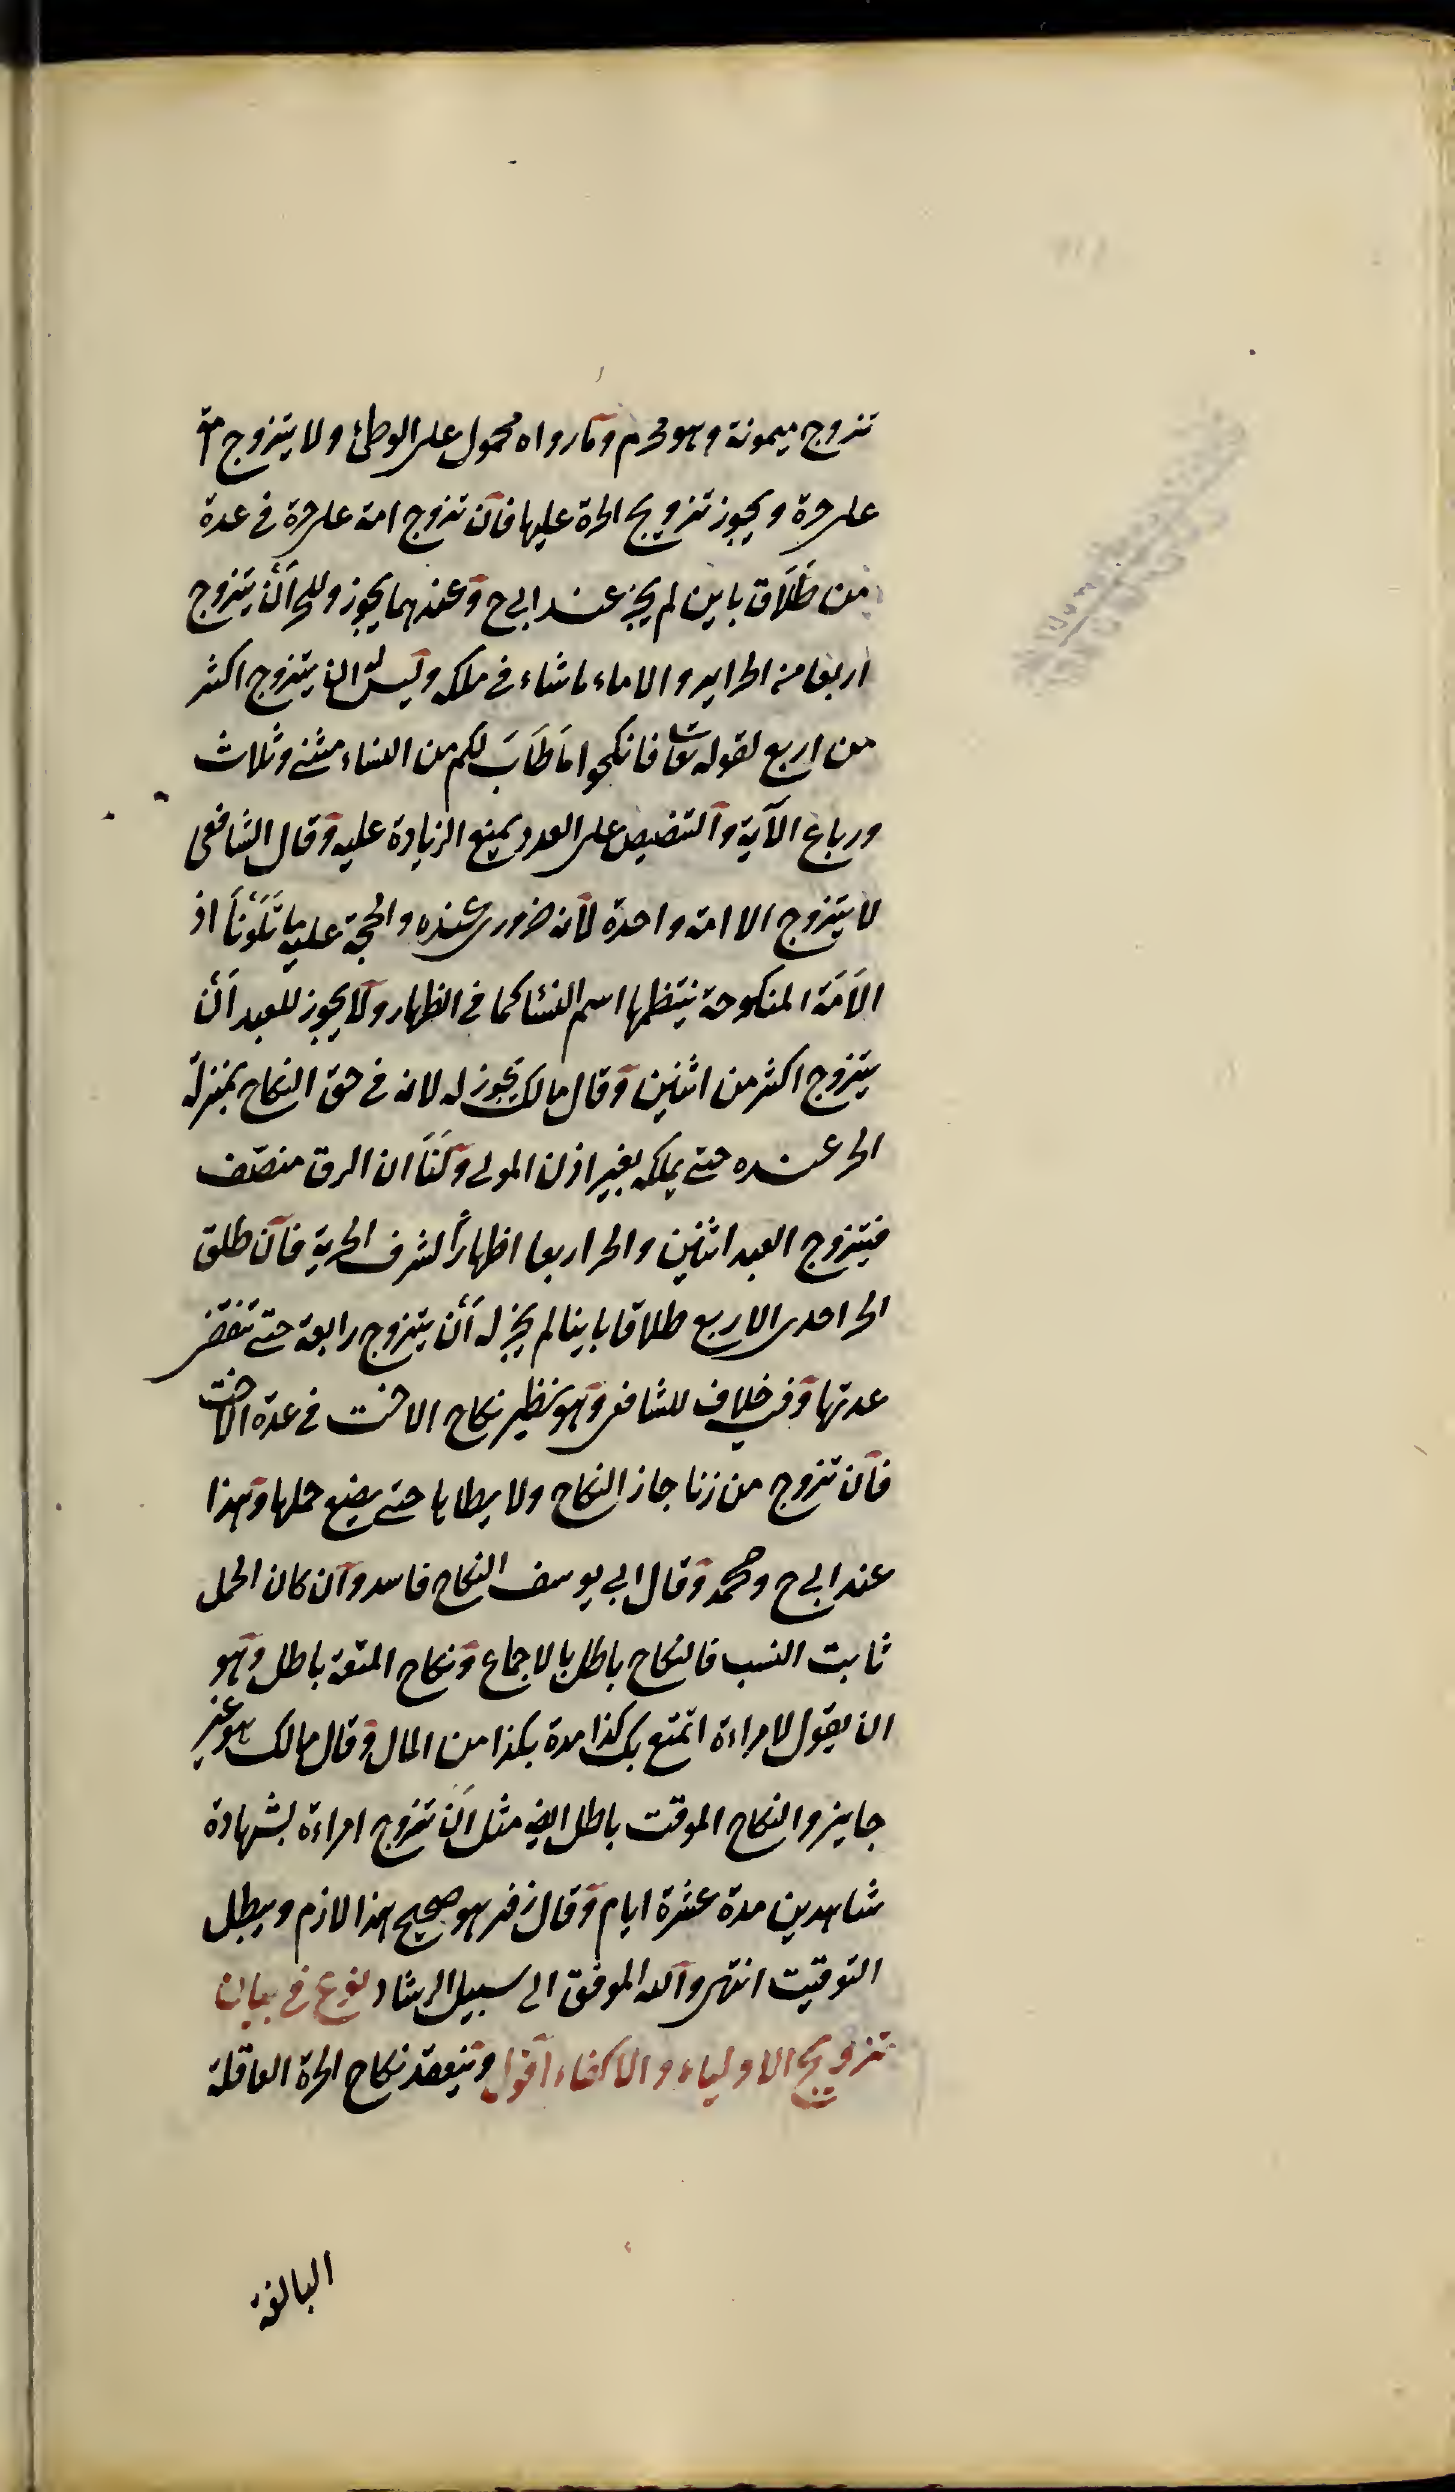 تزوج ميمونة وهو محرم وما رواه محمول على الوطئ ولا يتزوج امة
على حرة ويجوز تزويج الحرة عليها فان تزوج امة على حرة في عدة
من طَلَاق باين لم يجز عند ابي ح وعندهما يجوز وللحر اَنْ يتزوج
اربعا من الحراير والاماء ما شاء في ملكه وليس له ان يتزوج اكثر
من اربع لقوله تعا فانكحوا ما طَابَ لكم من النساء مثنى وثلاث
ورباع الآية والتنصيص على العدد يمنع الزيادة عليه وقال الشافعى
لا يتزوج الا امة واحدة لانه ضروري عنده والحجة عليه ما تَلَوْنَا اذ
الاَمَة المنكوحة ينتظمها اسم النسا كما في الظهار ولا يجوز للعبد اَنْ
يتزوج اكثر من اثنين وقال مالك يجوز له لانه في حق النكاح بمنزلة
الحر عنده حتى يملكه بغير اذن المولى ولَنَا ان الرق منصّف
فيتزوج العبد اثنين والحر اربعا اظهاراً لشرف الحرية فان طلق
الحر احدى الاربع طلاقا باينا لم يجز له اَنْ يتزوج رابعة حتى تنقضى
عدتها وفيه خلاف للشافعى وهو نظير نكاح الاخت في عدة الاخت
فان تزوج من زنا جاز النكاح ولا يطاها حتى يضع حملها وهذا
عند ابي ح ومحمد وقال ابي يوسف النكاح فاسد وان كان الحمل
ثابت النسب فالنكاح باطل بالاجماع ونكاح المتعة باطل وهو
ان يقول لامراءة اتمتع بك كذا مدة بكذا من المال وقال مالك هو غير
جايز والنكاح الموقت باطل ايضا مثل اَن تزوج امراءة بشهادة
شاهدين مدة عشرة ايام وقال زفر هو صحيح هذا لازم ويبطل
التوقيت انتهى والله الموفق الى سبيل الرشاد نوع في بيان
تزويج الاولياء والاكفاء اقول وينعقد نكاح الحرة العاقلة
البالغة